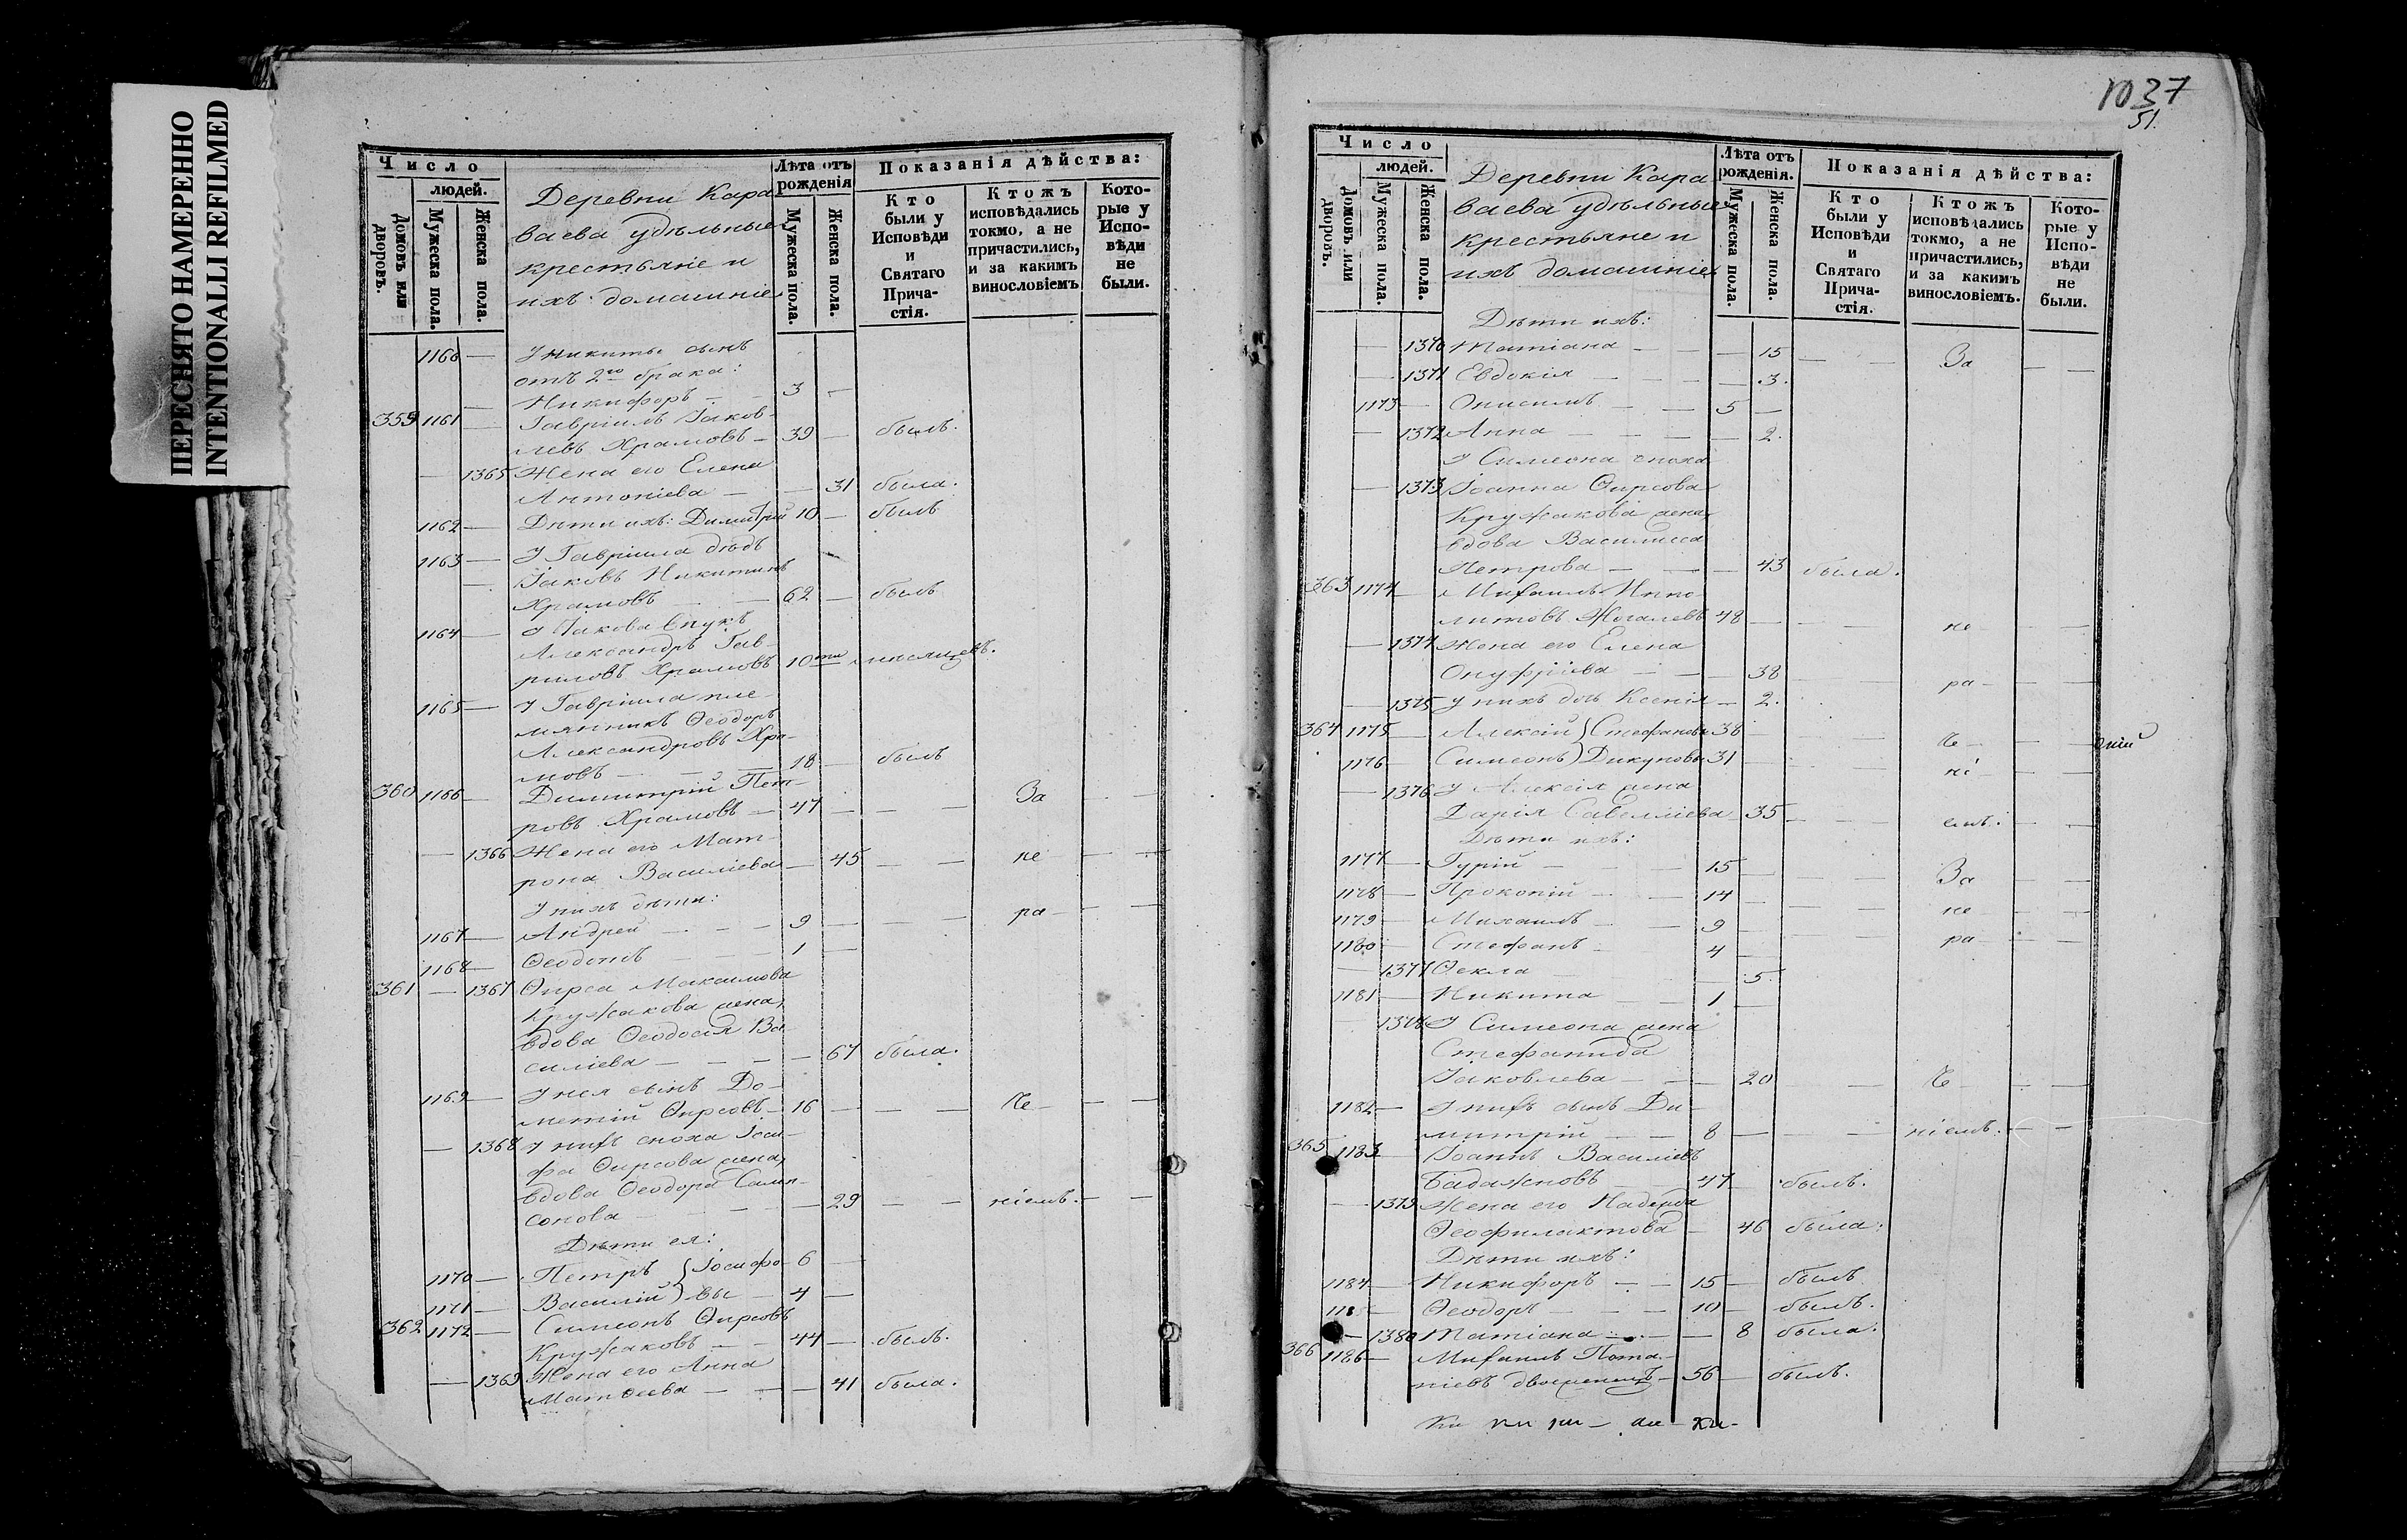 ПЕРЕСНЯТО НАМЕРЕННО
INTENTIONALLI REFILMED
Число
людей.
Домовъ или дворовъ.
Мужеска пола.
Женска пола.
Деревни Кара
ваева удѣльные
крестьяне и
ихъ домашніе
Лѣта отъ рожденія
Мужеска пола.
Женска пола.
Показанія дѣйства:
Кто были у Исповѣди и Святаго Причастія.
Ктожъ исповѣдались токмо, а не причастились, и за какимъ винословіемъ
Которые у Исповѣди не были.
1160 — У Никиты сынъ
отъ 2го брака:
— Никифоръ — 3 —
359 1161 — Гавріилъ Іаков-
левъ Храмовъ — 39 — былъ.
— 1365 Жена его Елена
Антоніева — — 31 была.
1162 — Дѣти ихъ: Димитрій 10 — былъ
1163 — У Гавріила дѣдъ
— Іаковъ Никитинъ
Храмовъ — 62 — былъ
1164 — У Іакова внукъ
Александръ Гав-
риловъ Храмовъ 10ти мѣсяцевъ.
1165 — У Гавріила пле-
мянникъ Ѳеодоръ
Александровъ Хра-
мовъ — — 18 — былъ
360 1166 — Димитрій Пет-
ровъ Храмовъ — 47 — — — За — —
— 1366 Жена его Мат-
рона Василіева — 45 — — не — —
У нихъ дѣти:
1167 — Андрей — — — 9 — — — ра — —
1168 — 1 —
361 — 1367 Ѳирса Максимова
Кружакова жена,
вдова Ѳеодосія Ва
силіева — — — — 67 была.
1169 — У нея сынъ До-
метій Ѳирсовъ — 16 — — — Че — —
— 1368 У нихъ сноха Іоси-
фа Ѳирсова жена,
вдова Ѳеодора Самп-
сонова — — — — 29 — — ніемъ. — —
Дѣти ея:
1170 — Петръ } Іосифо- 6 —
1171 — Василій } вы — 4 —
362 1172 — Симеонъ Ѳирсовъ
Кружаковъ — — 44 — былъ.
— 1369 Жена его Анна
Матѳеева — — — 41 была.
1037
51.
Число
людей.
Домовъ или дворовъ.
Мужеска пола.
Женска пола.
Деревни Кара
ваева удѣльные
крестьяне и
ихъ домашніе
Лѣта отъ рожденія.
Мужеска пола.
Женска пола.
Показанія дѣйства:
Кто были у Исповѣди и Святаго Причастія.
Ктожъ исповѣдались токмо, а не причастились, и за какимъ винословіемъ.
Которые у Исповѣди не были.
Дѣти ихъ:
— 1370 Татіана — — — 15 — — За — —
— 1371 Евдокія — — — — 3.
1173 — Онисимъ — — 5 —
— 1372 Анна — — — — 2.
У Симеона сноха
— 1373 Іоанна Ѳирсова
Кружакова жена,
вдова Василисса
Петрова — — — 43 была.
363 1174 — Михаилъ Иппо-
литовъ 48 — — — не — —
— 1374 Жена его Елена
Онуфріева — — — 38 ра — — —
— 1375 У нихъ дочь Ксенія — 2.
364 1175 — Алексій } Стефановы 38 — — — Че — —
1176 — Симеонъ } Дикуновы 31 — — — ні — —
— 1376 У Алексія жена
Дарія Савелліева — 35 — — емъ. — —
Дѣти ихъ:
1177 — Гурій — — 15 — — — За — —
1178 — Прокопій — — 14 — — — не — —
1179 — Михаилъ — — 9 — — — ра — —
1180 — Стефанъ — 4 —
— 1377 Ѳекла — 5.
1181 — Никита — — 1 —
— 1378 У Симеона жена
Стефанида
Іаковлева — — — 20 — Че — — —
1182 — У нихъ сынъ Ди-
митрій — — 8 — — — ніемъ. — —
365 1183 — Іоаннъ Василіевъ
47 — былъ.
— 1379 Жена его Надежда
Ѳеофилактова — 46 была.
Дѣти ихъ:
1184 — Никифоръ — — 15 — былъ
— Ѳеодоръ — — — 10 — былъ.
— 1380 Татіана — — — 8 была.
366 1186 — Михаилъ Пота-
піевъ 56 — былъ.